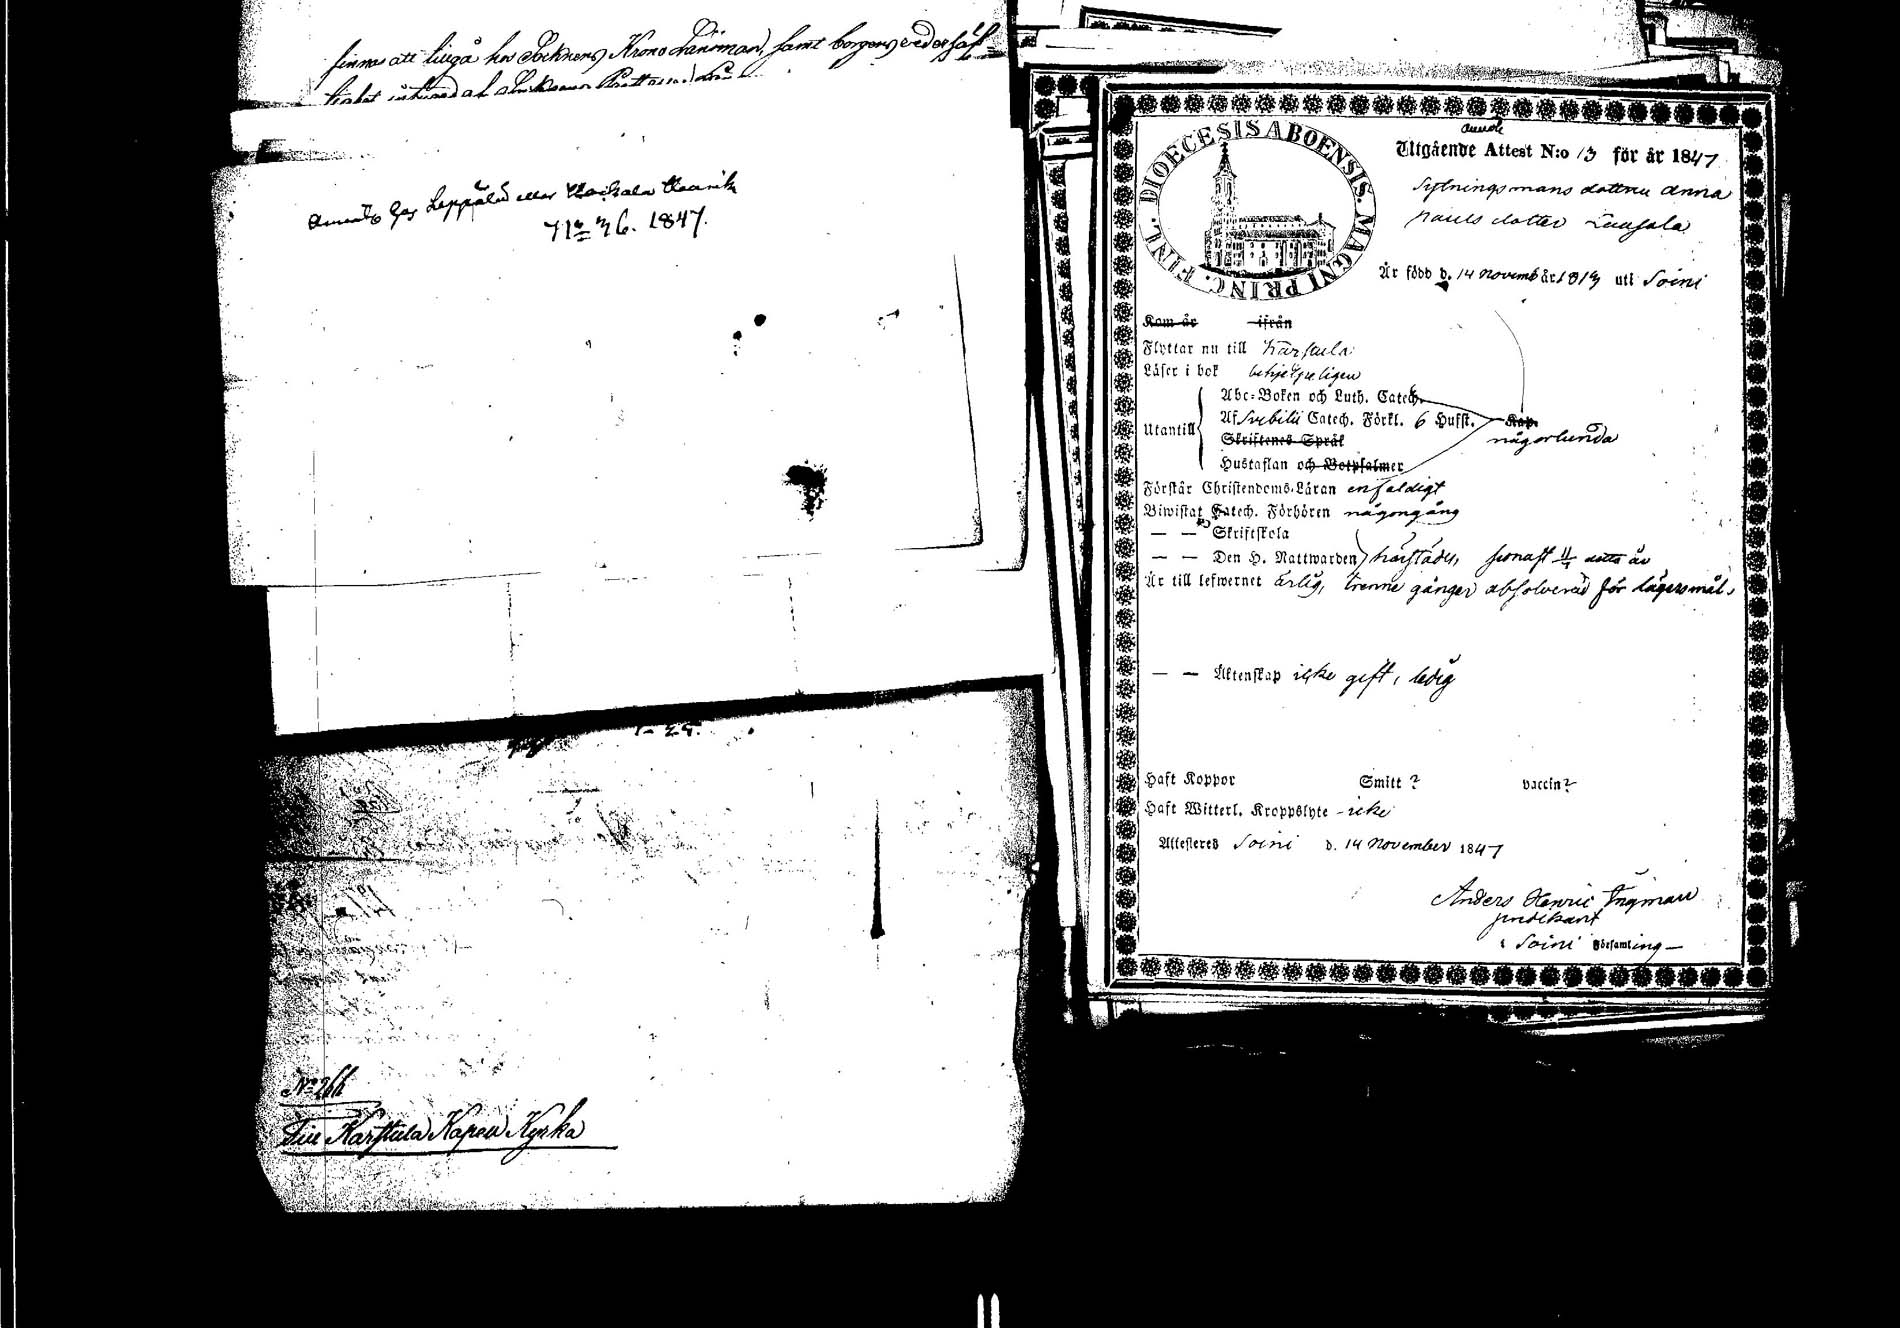 finnas att tillgå hos Socknens Krono Länsman, samt borgens
Anmäls hos Leppälä eller
No 36. 1847.
No 266
Till Karstula Kapell Kyrka
DIOECESIS ABOENSIS. MAGNI PRINC. FINL.
Utgående Attest N:o 13 för år 1847
Sytningsmans dottren Anna
Pauls dotter
Är född d. 14 novemb år 1813 uti Soini
Kom år ifrån
Flyttar nu till Karstula
Läser i bok behjelpeligen
Abc-Boken och Luth. Catech.
Utantill
Af Svebilii Catech. Förkl. 6 Hufst. Kap.
någorlunda
Skriftenes Språk
Hustaflan och Botpsalmer
Förstår Christendoms-Läran enfaldigt
Biwistat Catech. Förhören någongång
— — Skriftskola
— — Den H. Nattwarden härstädes, senast detta år
Är till lefwernet ärlig, trenne gånger absolverad för lägersmål.
— — Äktenskap icke gift, ledig
Haft Koppor Smitt? vaccin?
Haft Witterl. Kroppslyte - icke
Attesteras Soini d. 14 November 1847
Anders Henric Ingman
predikant
i Soini Församling —